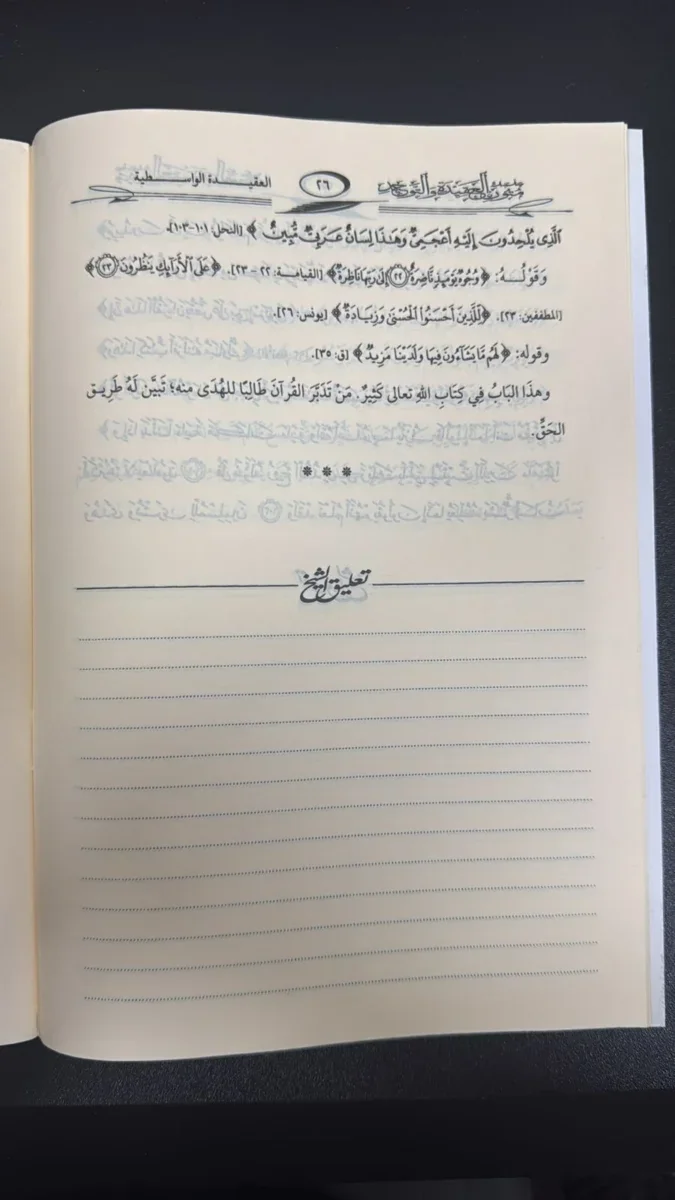 متون العقيدة والتوحيد ٢٦ العقيدة الواسطية
الَّذِى يُلْحِدُونَ إِلَيْهِ أَعْجَمِىٌّ وَهَٰذَا لِسَانٌ عَرَبِىٌّ مُّبِينٌ ﴾ [النحل: ١٠١-١٠٣].
وَقَوْلُهُ: ﴿وُجُوهٌ يَوْمَئِذٍ نَّاضِرَةٌ ﴿٢٢﴾ إِلَىٰ رَبِّهَا نَاظِرَةٌ﴾ [القيامة: ٢٢ - ٢٣]. ﴿عَلَى ٱلْأَرَآئِكِ يَنظُرُونَ ﴿٢٣﴾﴾
[المطففين: ٢٣]. ﴿لِّلَّذِينَ أَحْسَنُوا۟ ٱلْحُسْنَىٰ وَزِيَادَةٌ﴾ [يونس: ٢٦].
وقوله: ﴿لَهُم مَّا يَشَآءُونَ فِيهَا وَلَدَيْنَا مَزِيدٌ﴾ [ق: ٣٥].
وهذَا البَابُ فِي كِتَابِ اللهِ تعالى كَثِيرٌ. مَنْ تَدَبَّرَ القُرآنَ طَالِبًا للهُدَى منه؛ تَبيَّن لَهُ طَرِيق
الحَقِّ.
* * *
تعليق الشيخ